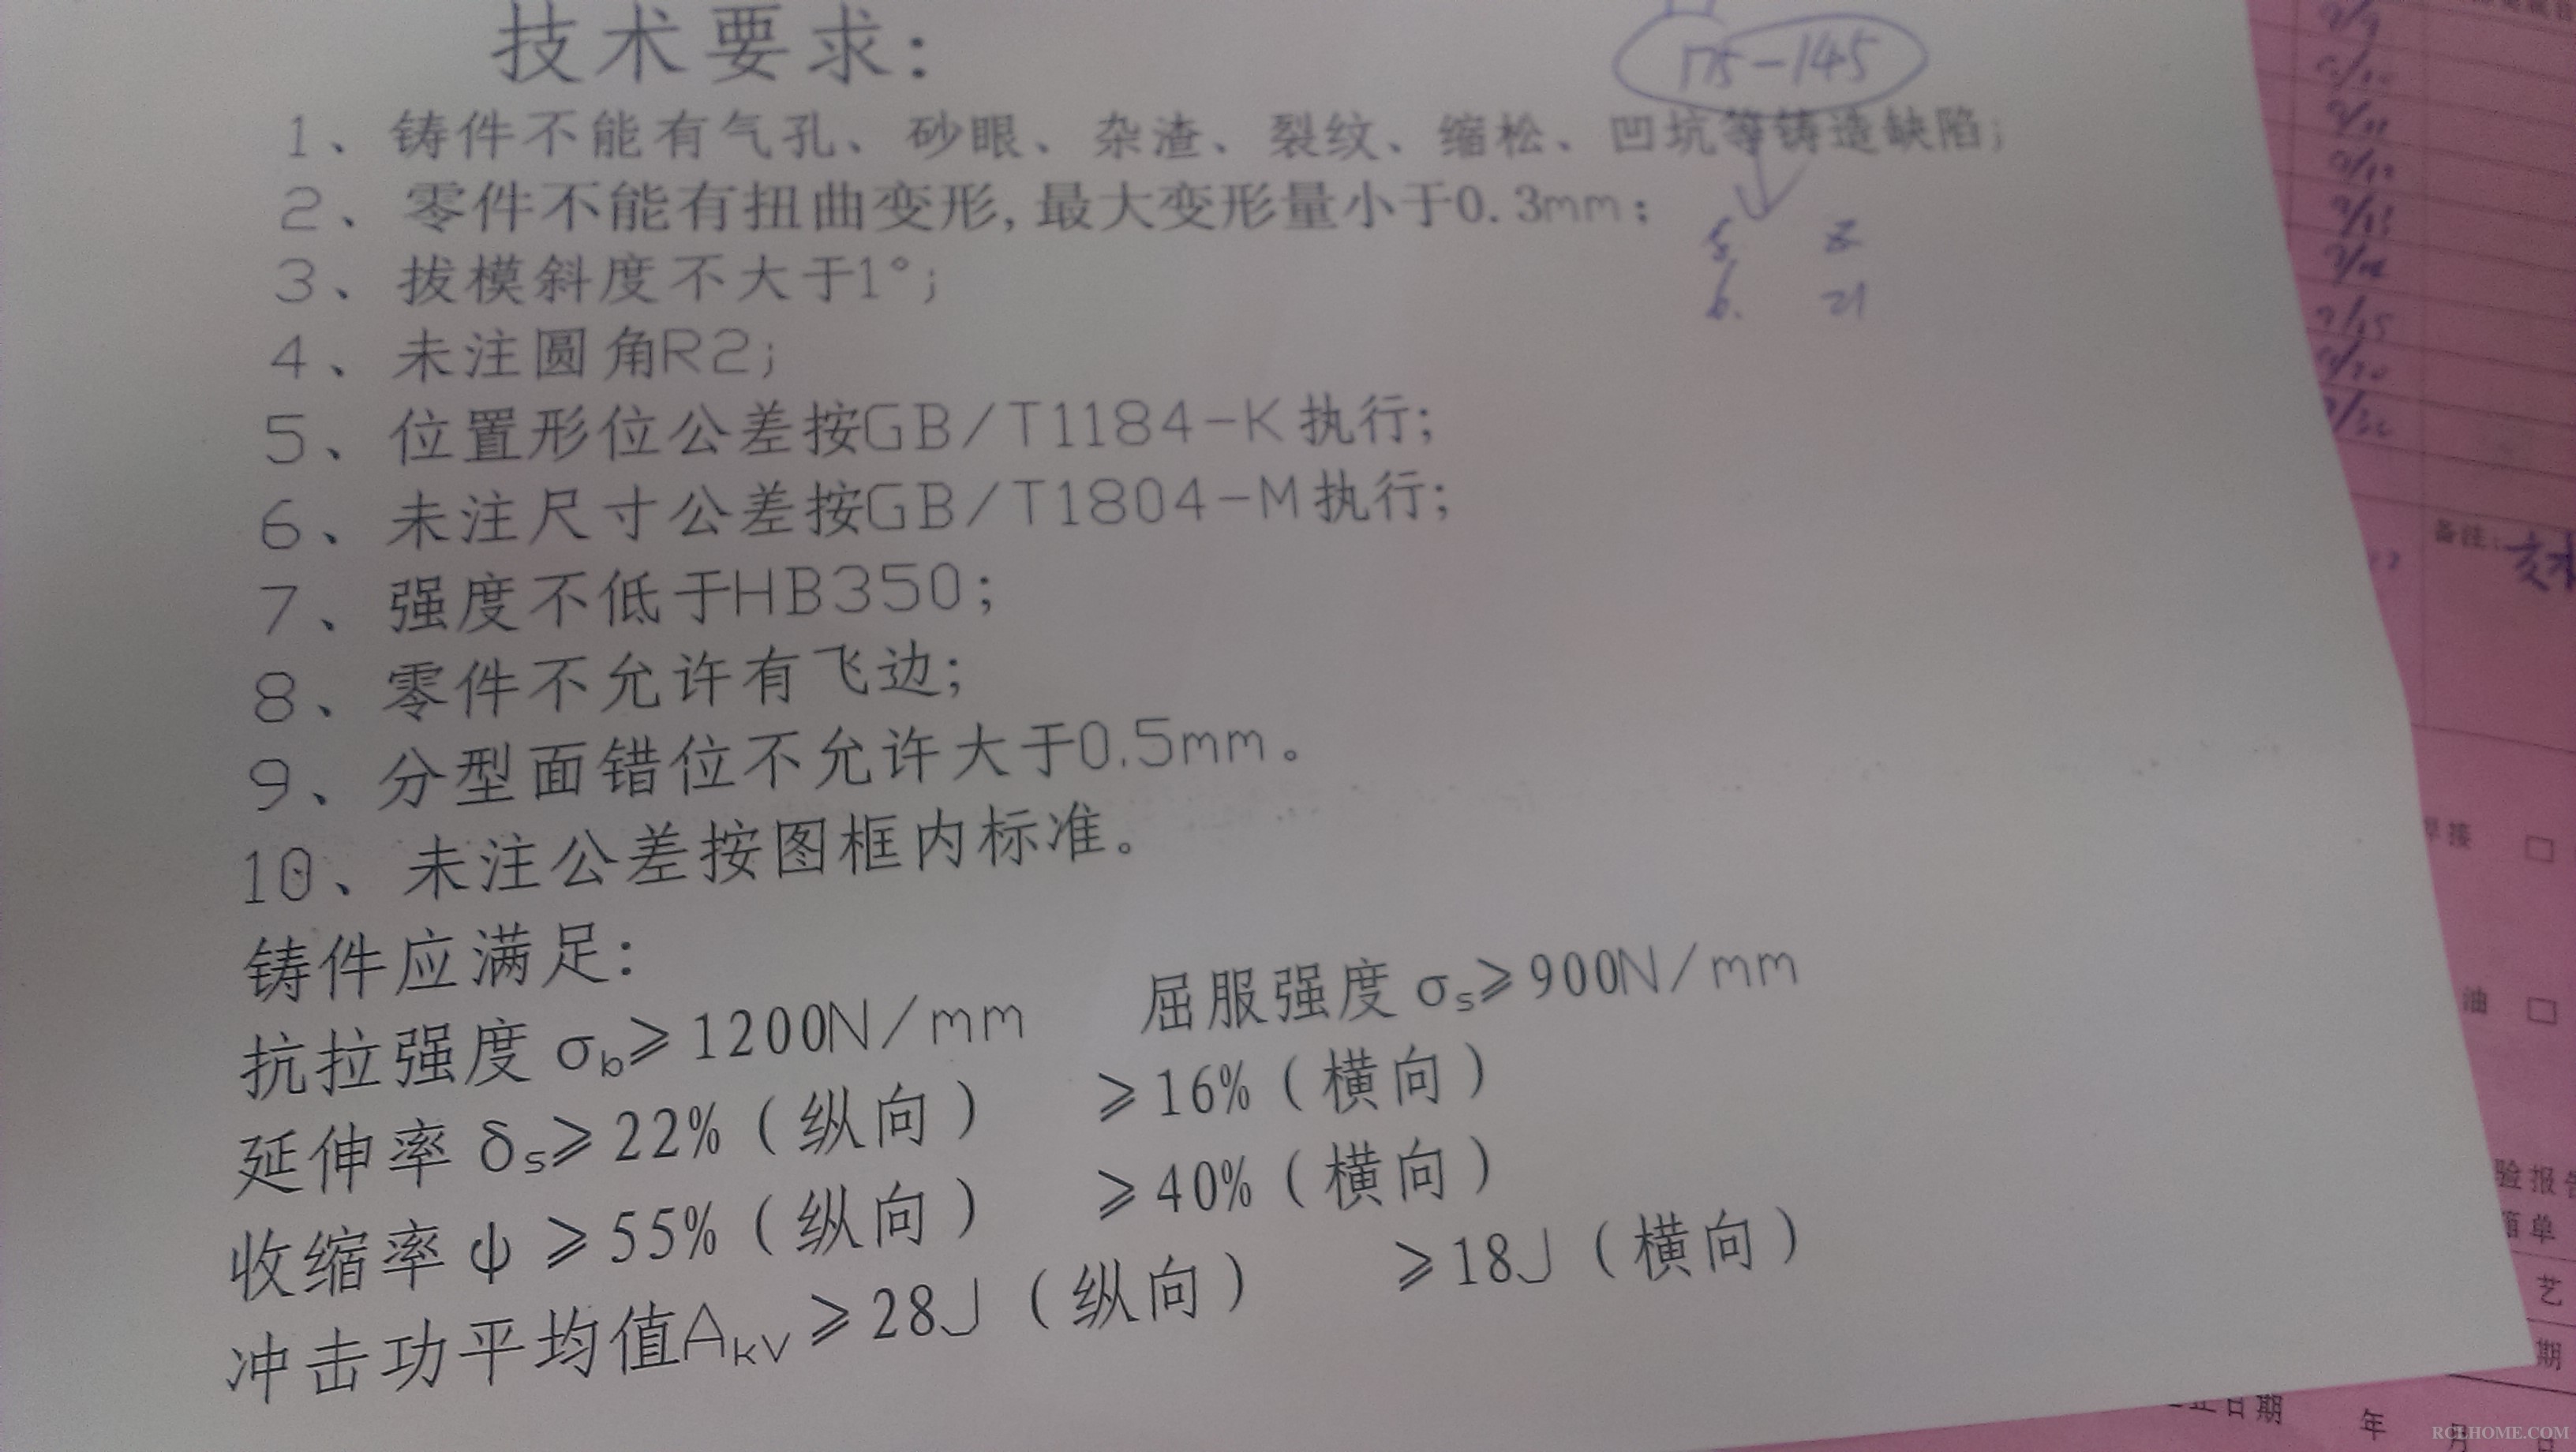 技术要求：
175-145
1、铸件不能有气孔、砂眼、杂渣、裂纹、缩松、凹坑等铸造缺陷；
2、零件不能有扭曲变形,最大变形量小于0.3mm；
3、拔模斜度不大于1°；
4、未注圆角R2；
5、位置形位公差按GB/T1184-K执行；
6、未注尺寸公差按GB/T1804-M执行；
7、强度不低于HB350；
8、零件不允许有飞边；
9、分型面错位不允许大于0.5mm。
10、未注公差按图框内标准。
铸件应满足：
抗拉强度 σb≥1200N/mm 屈服强度 σs≥900N/mm
延伸率 δs≥22%（纵向） ≥16%（横向）
收缩率 ψ ≥55%（纵向） ≥40%（横向）
冲击功平均值AKV≥28J（纵向） ≥18J（横向）
备注：
油 □
验报告
单
艺
期
日期 年 月 日
RCLHOME.COM